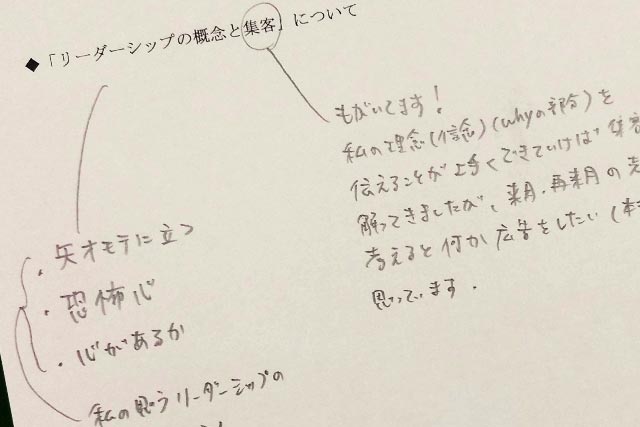 ◆「リーダーシップの概念と集客」について
もがいてます!
私の理念(信念)(whyの部分)を
伝えることが上手くできていけば 集客
解ってきましたが、来月、再来月の売
考えると何か広告をしたい(本
思っています.
・矢オモテに立つ
・恐怖心
・心があるか
私の思うリーダーシップの